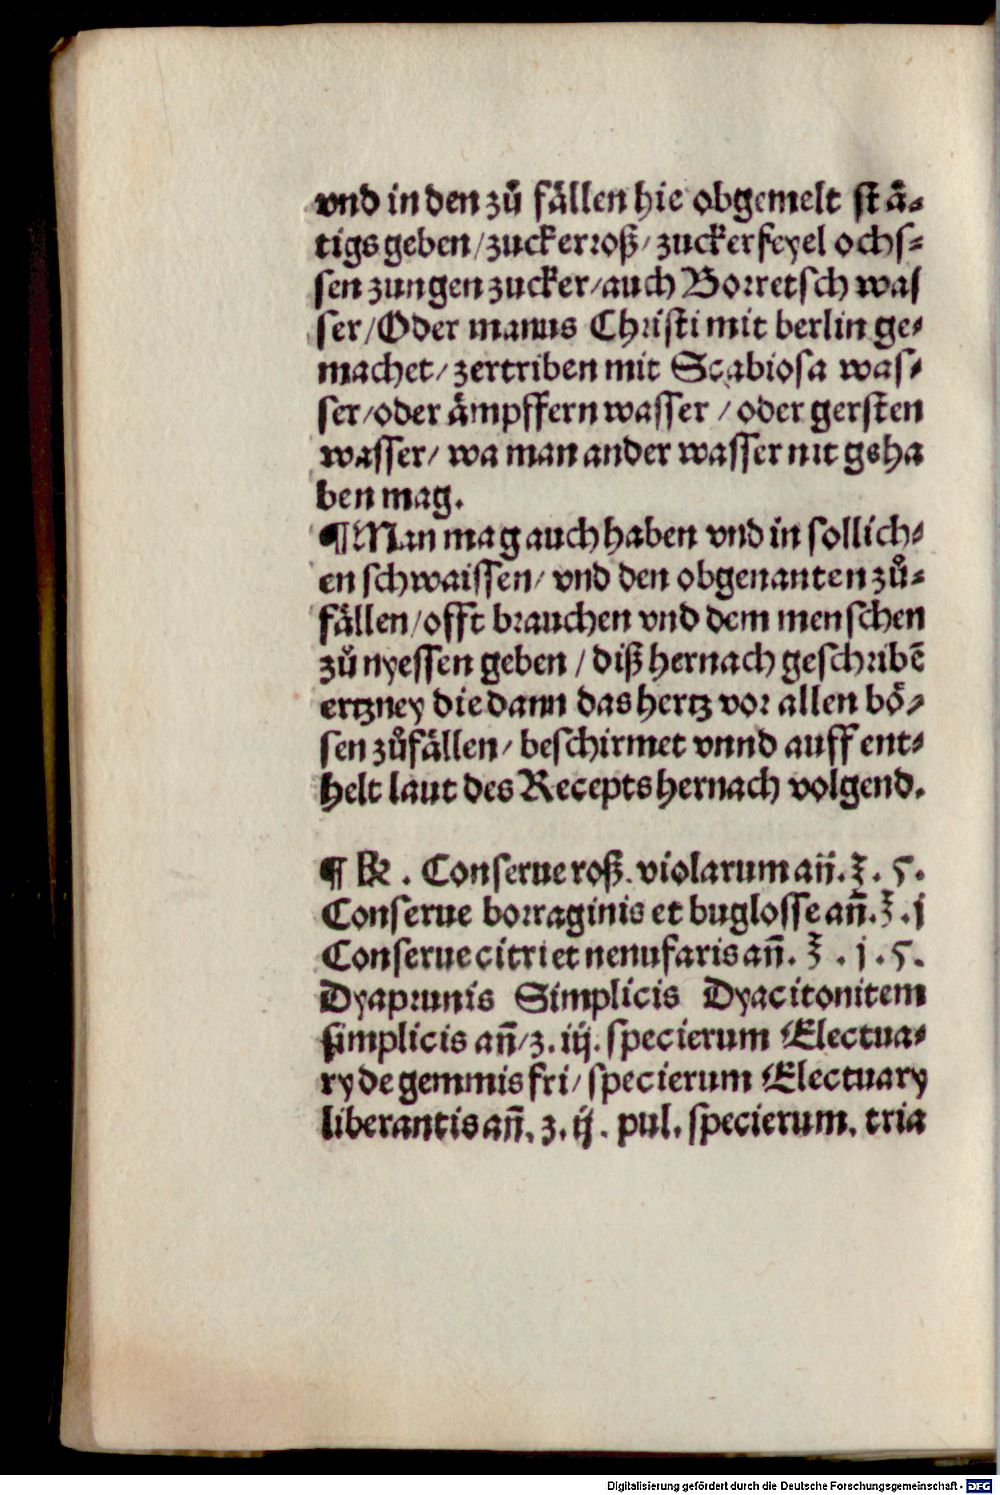 vnd in den zuͦ faͤllen hie obgemelt ſtaͤ⸗
tigs geben / zuckerroß / zuckerfeyel ochſ⸗
ſen zungen zucker / auch Borretſch waſ
ſer / Oder manus Chriſti mit berlin ge⸗
machet / zertriben mit Scabioſa waſ⸗
ſer / oder aͤmpffern waſſer / oder gerſten
waſſer / wa man ander waſſer nit gsha
ben mag.
¶ Man mag auch haben vnd in ſollich⸗
en ſchwaiſſen / vnd den obgenanten zuͦ⸗
faͤllen / offt brauchen vnd dem menſchen
zuͦ nyeſſen geben / diß hernach geſchribē
ertzney die dann das hertz vor allen boͤ⸗
ſen zuͦfaͤllen / beſchirmet vnnd auff ent⸗
helt laut des Recepts hernach volgend.
¶ ℞. Conſerue roß. violarum an̄. ℥. ς.
Conſerue borraginis et bugloſſe an̄. ℥. j
Conſerue citri et nenufaris an̄. ℥. j. ς.
Dyaprunis Simplicis Dyacitonitem
ſimplicis an̄ / ʒ. iij. ſpecierum Electua⸗
ry de gemmis fri / ſpecierum Electuary
liberantis an̄. ʒ. ij. pul. ſpecierum. tria
Digitalisierung gefördert durch die Deutsche Forschungsgemeinschaft - DFG